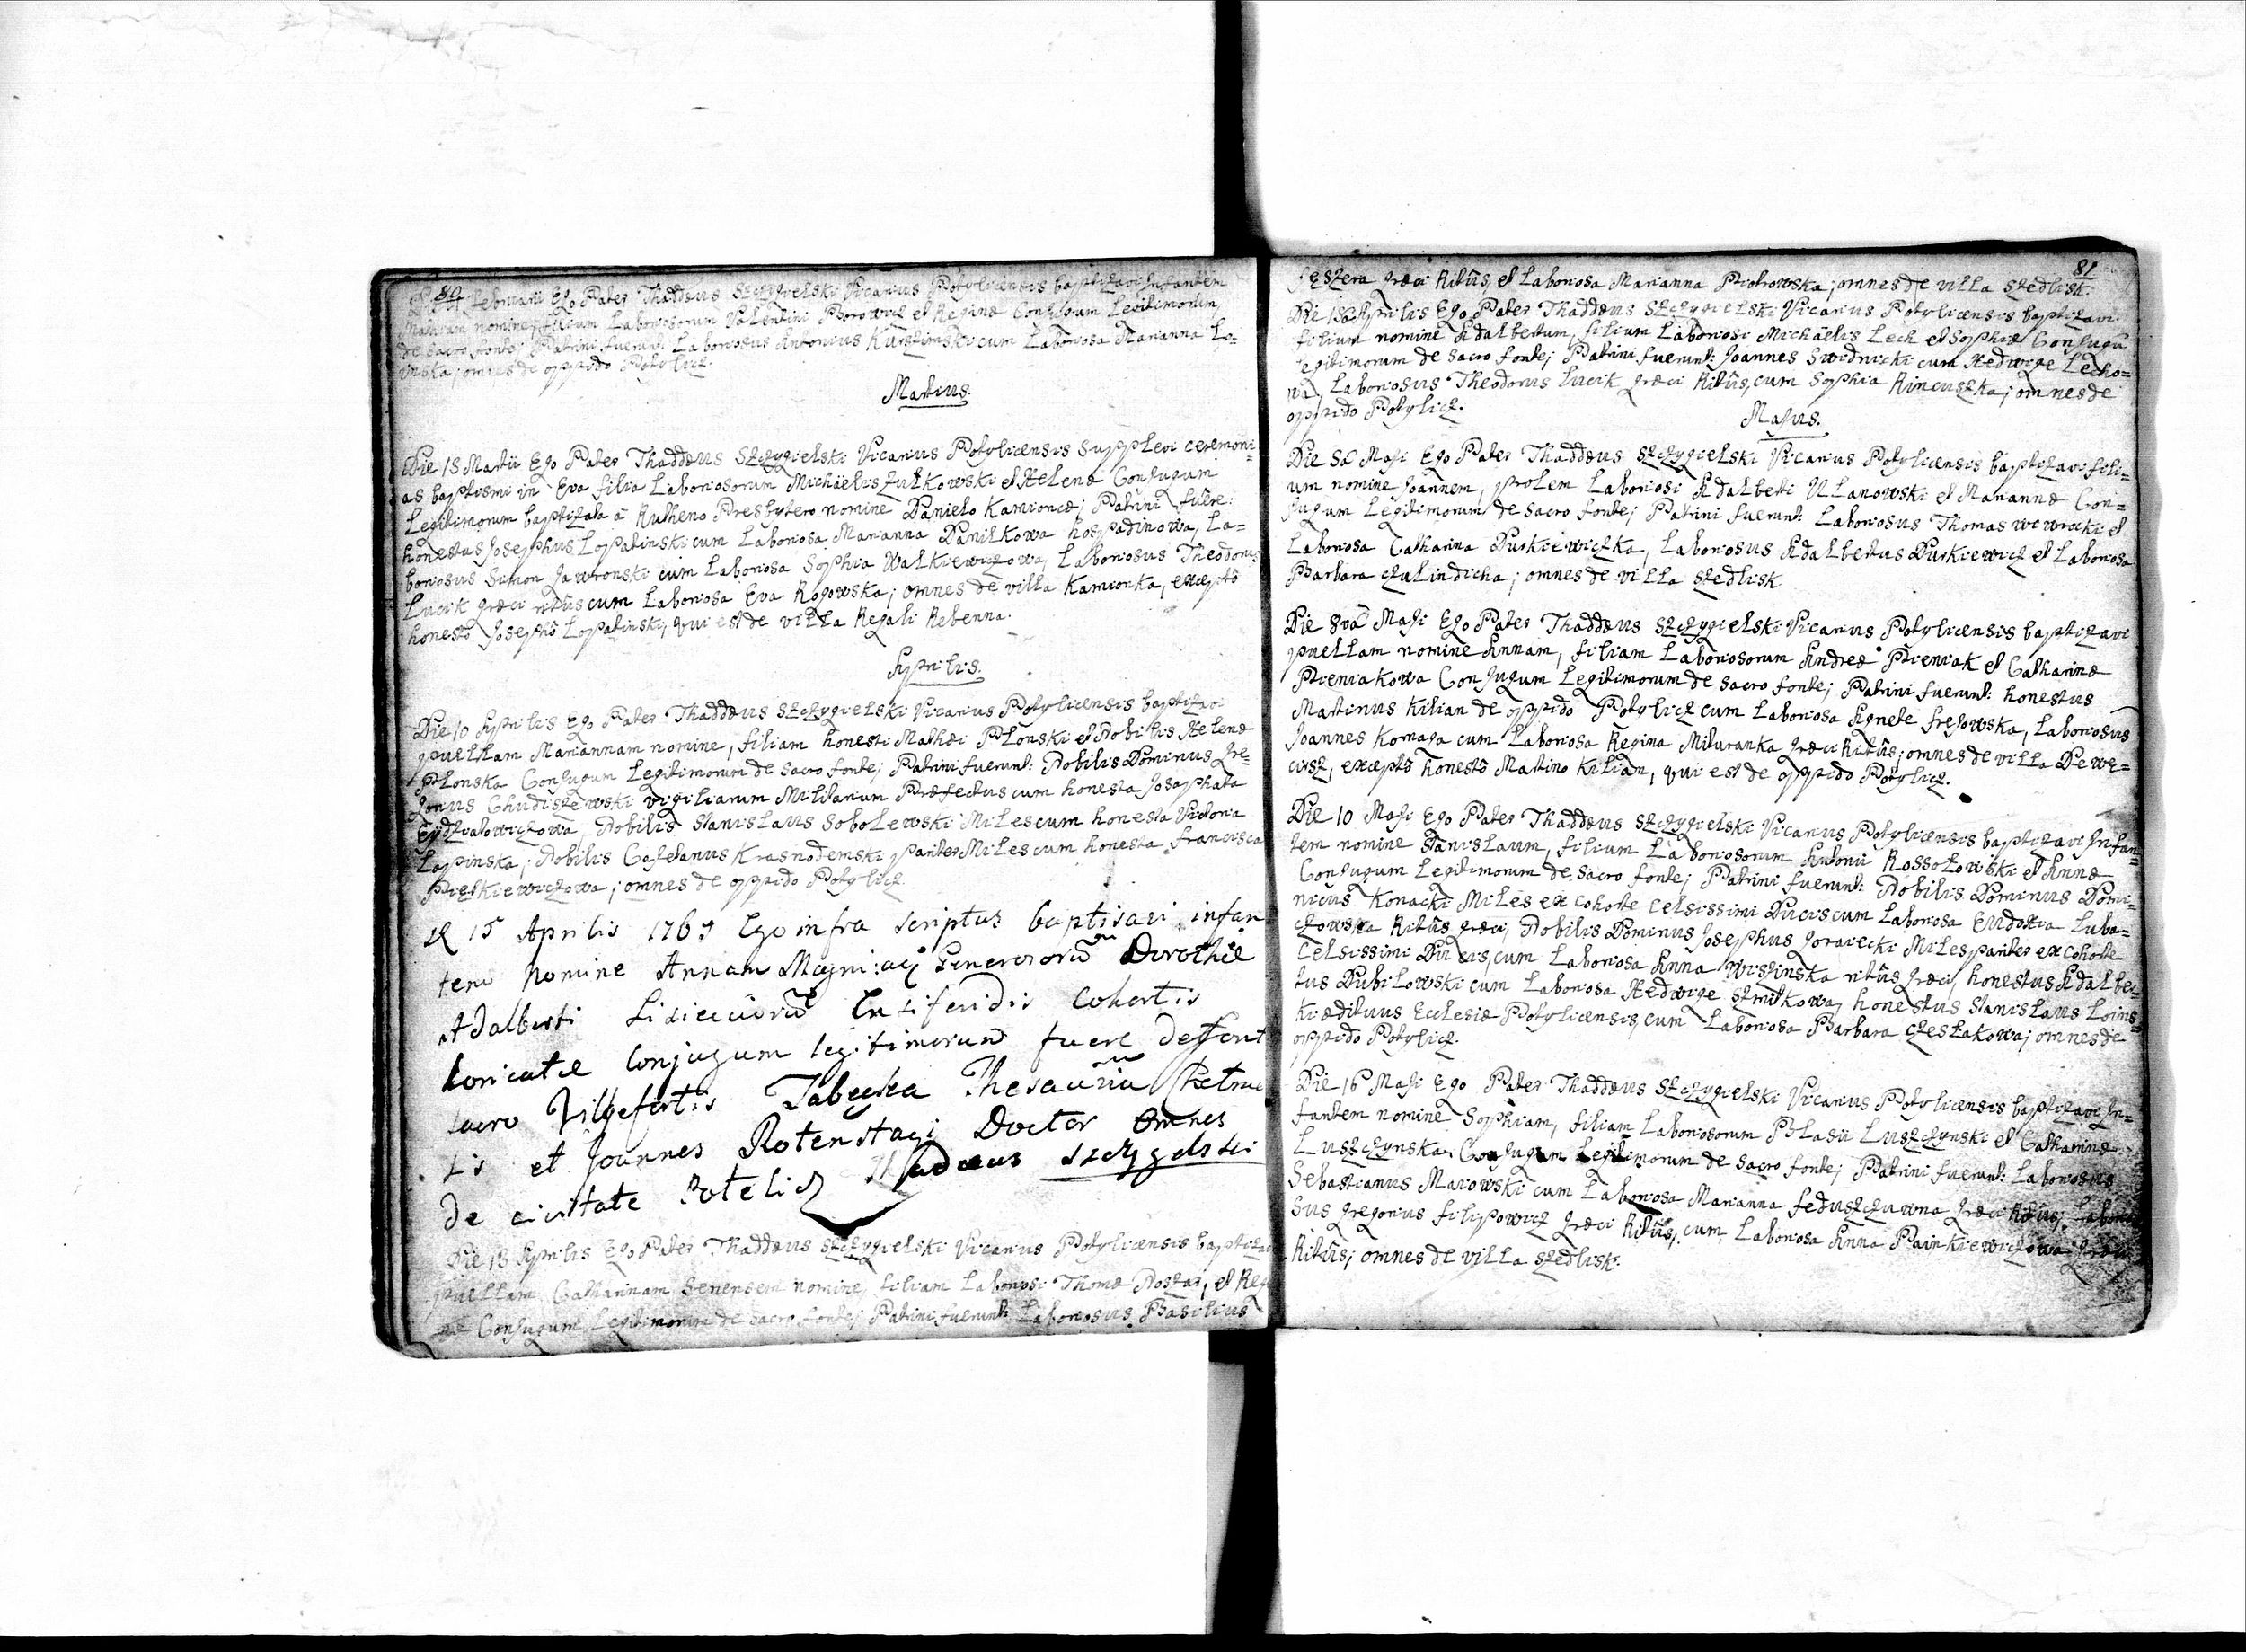 80
Februarii Ego Pater Thaddæus Szczygielski Vicarius Potylicensis baptizavi Infantem
Mariam nomine, filiam Laboriosorum Valentini Borowicz et Reginæ Conjugum Legitimorum
de sacro fonte; Patrini fuerunt: Laboriosus Antonius Kurzimski cum Laboriosa Marianna
omnes de oppido Potylicz.
Martius.
Die 18 Martii Ego Pater Thaddæus Szczygielski Vicarius Potylicensis supplevi ceremoni=
as baptismi in Eva filia Laboriosorum Michaelis Zułkowski et Helenæ Conjugum
Legitimorum baptizata à Rutheno Presbytero nomine Danieło Kamioncæ; Patrini fuere:
honestus Josephus Lopatinski cum Laboriosa Marianna Daniłkowa hospadinowa, La=
boriosus Simon Jawronski cum Laboriosa Sophia Walkiewiczowa, Laboriosus Theodorus
Lucik græci ritûs cum Laboriosa Eva Rogowska; omnes de villa Kamionka, exceptô
honestô Josephô Lopatinski, qui est de villa Regali Rebenna.
Aprilis.
Die 10 Aprilis Ego Pater Thaddæus Szczygielski Vicarius Potylicensis baptizavi
puellam Mariannam nomine, filiam honesti Mathæi Płonski et Nobilis Helenæ
Płonska Conjugum Legitimorum de sacro fonte; Patrini fuerunt: Nobilis Dominus Gre=
gorius Chudiszewski vigiliarum Militarium Præfectus cum honesta Josaphata
Nobilis Stanislaus Sobolewski Miles cum honesta Victoria
Łapinska; Nobilis Cajetanus Krasnodemski pariter Miles cum honesta Francisca
Pieskiewiczowa; omnes de oppido Potylicz.
15 Aprilis Ego infra scriptus baptisavi infan
tem Nomine Annam Dorothæ
Adalberti Cohortis
Loricatæ Conjugum legitimorum fuere de font
sacro Thesaur
is et Joannes Rotenstagi Doctor omnes
de civitate Potelicz Thadæus Szczygelski
Die 13 Aprilis Ego Pater Thaddæus Szczygielski Vicarius Potylicensis baptiza
puellam Catharinam Senensem nomine, filiam Laboriosi Thomæ Noszar, et Regi
næ Conjugum Legitimorum de sacro fonte; Patrini fuerunt: Laboriosus Basilius
81
Jeszera græci Ritûs, et Laboriosa Marianna Piotrowska; omnes de villa Szedlisk.
Die 18 Aprilis Ego Pater Thaddæus Szczygielski Vicarius Potylicensis baptizavi
filium nomine Adalbertum, filium Laboriosi Michaelis Lech et Sophiæ Conjugũ
Legitimorum de sacro fonte; Patrini fuerunt: Joannes Swidnicki cum Hedwige Lecho=
wa, Laboriosus Theodorus Lucik græci Ritûs, cum Sophia Rincuszka; omnes de
oppido Potylicz.
Majus.
Die 8a Maji Ego Pater Thaddæus Szczygielski Vicarius Potylicensis baptizavi fili=
um nomine Joannem, prolem Laboriosi Adalberti Ulanowski et Mariannæ Con=
jugum Legitimorum de sacro fonte; Patrini fuerunt: Laboriosus Thomas Wewrocki et
Laboriosa Catharina Duskiewiczka, Laboriosus Adalbertus Duskiewicz et Laboriosa
Barbara Czulindicha; omnes de villa Szedlisk
Die 8va Maji Ego Pater Thaddæus Szczygielski Vicarius Potylicensis baptizavi
puellam nomine Annam, filiam Laboriosorum Andreæ Pieniak et Catharinæ
Pieniakowa Conjugum Legitimorum de sacro fonte; Patrini fuerunt: honestus
Martinus Kilian de oppido Potylicz cum Laboriosa Agnete Frejowska, Laboriosus
Joannes Komaga cum Laboriosa Regina Mituranka græci Ritûs; omnes de villa Dewe=
cisz, exceptô honestô Martino Kilian, qui est de oppido Potylicz.
Die 10 Maji Ego Pater Thaddæus Szczygielski Vicarius Potylicensis baptizavi Infan=
tem nomine Stanislaum, filium Laboriosorum Antonii Rossołowski et Annæ
Conjugum Legitimorum de sacro fonte; Patrini fuerunt: Nobilis Dominus Domi=
nicus Konacki Miles ex Cohorte Celsissimi Ducis cum Laboriosa Eudoxia Luba=
czowska Ritûs græci, Nobilis Dominus Josephus Goraiecki Miles pariter ex Cohorte
Celsissimi Ducis, cum Laboriosa Anna Wiszinska ritûs græci, honestus Adalber=
tus Dubilowski cum Laboriosa Hedwige Szmitkowa, honestus Stanislaus Loins=
ki ædituus Ecclesiæ Potylicensis, cum Laboriosa Barbara Czeslakowa; omnes de
oppido Potylicz.
Die 16 Maji Ego Pater Thaddæus Szczygielski Vicarius Potylicensis baptizavi In=
fantem nomine Sophiam, filiam Laboriosorum Blasii Luszczynski et Catharinæ
Luszczynska Conjugum Legitimorum de sacro fonte; Patrini fuerunt: Laboriosus
Sebastianus Marowski cum Laboriosa Marianna Feduszczuwna græci Ritûs; Laborio
sus Gregorius Filipowicz græci Ritûs, cum Laboriosa Anna Painkiewiczowa græci
Ritûs; omnes de villa Szedlisk.